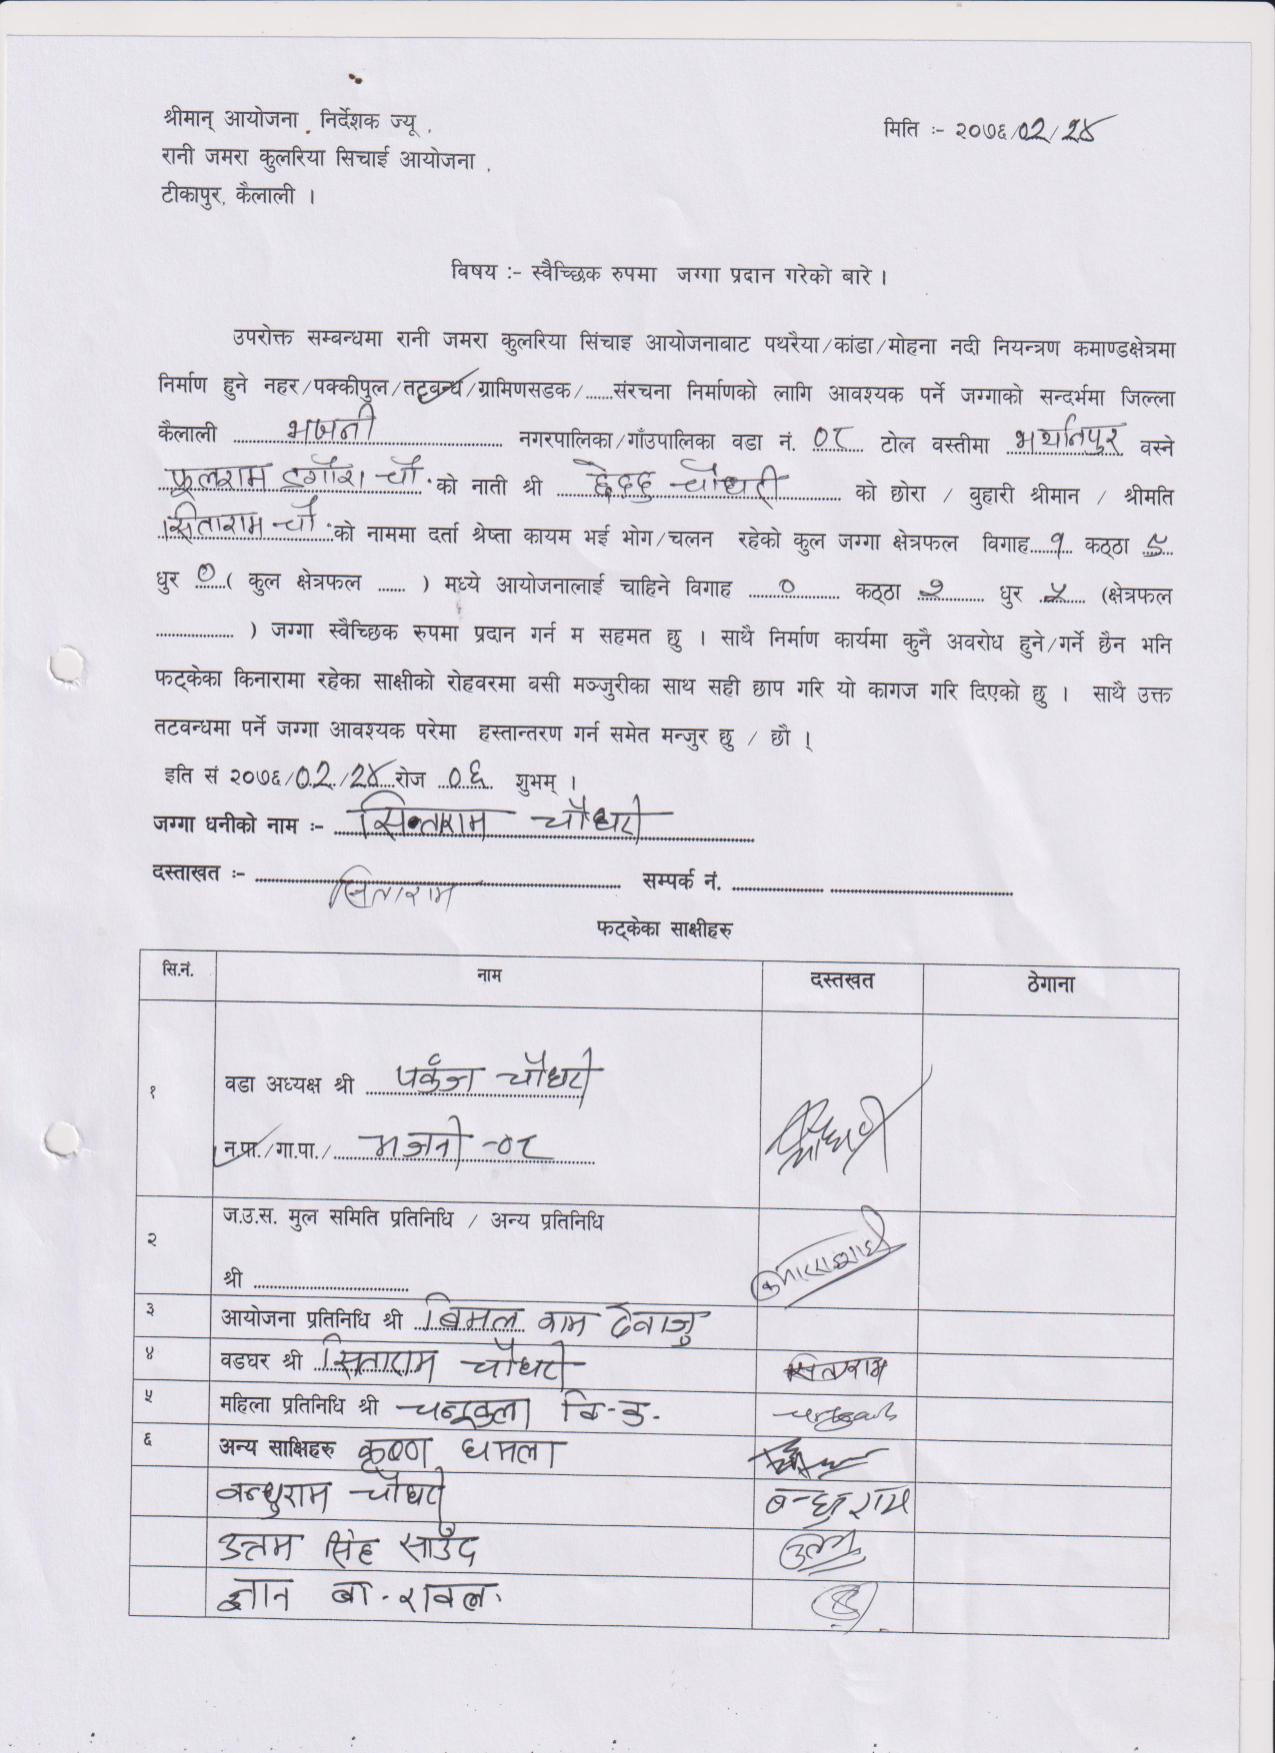 श्रीमान् आयोजना निर्देशक ज्यू ,
मिति :- २०७६/०२/२४
रानी जमरा कुलरिया सिचाई आयोजना ,
टीकापुर, कैलाली ।
विषय :- स्वैच्छिक रुपमा जग्गा प्रदान गरेको बारे ।
उपरोक्त सम्बन्धमा रानी जमरा कुलरिया सिंचाइ आयोजनाबाट पथरैया/कांडा/मोहना नदी नियन्त्रण कमाण्डक्षेत्रमा
निर्माण हुने नहर/पक्कीपुल/तटबन्ध/ग्रामिणसडक/......संरचना निर्माणको लागि आवश्यक पर्ने जग्गाको सन्दर्भमा जिल्ला
कैलाली भजनी नगरपालिका/गाँउपालिका वडा नं. ०८ टोल वस्तीमा वस्ने
फूलराम चौ. को नाती श्री चौधरी को छोरा / बुहारी श्रीमान / श्रीमति
सिताराम चौ. को नाममा दर्ता श्रेष्ता कायम भई भोग/चलन रहेको कुल जग्गा क्षेत्रफल विगाह १ कठ्ठा ५
धुर ० ( कुल क्षेत्रफल ...... ) मध्ये आयोजनालाई चाहिने विगाह ० कठ्ठा २ धुर (क्षेत्रफल
.................. ) जग्गा स्वैच्छिक रुपमा प्रदान गर्न म सहमत छु । साथै निर्माण कार्यमा कुनै अवरोध हुने/गर्ने छैन भनि
फट्केका किनारामा रहेका साक्षीको रोहवरमा वसी मञ्जुरीका साथ सही छाप गरि यो कागज गरि दिएको छु । साथै उक्त
तटवन्धमा पर्ने जग्गा आवश्यक परेमा हस्तान्तरण गर्न समेत मन्जुर छु / छौ ।
इति सं २०७६/०२/२४ रोज ०६ शुभम् ।
जग्गा धनीको नाम :- सिताराम चौधरी
दस्ताखत :- सिताराम सम्पर्क नं. ....................
फट्केका साक्षीहरु
सि.नं. नाम दस्तखत ठेगाना
१ वडा अध्यक्ष श्री पकंज चौधरी
न.पा./गा.पा./ भजनी -०८
२ ज.उ.स. मुल समिति प्रतिनिधि / अन्य प्रतिनिधि
श्री ..............................
३ आयोजना प्रतिनिधि श्री बिमल राम देवाजु
४ वडघर श्री सिताराम चौधरी सिताराम
५ महिला प्रतिनिधि श्री चन्द्रकुला वि.क.
६ अन्य साक्षिहरु कृष्ण धमला
बन्धुराम चौधरी बन्धुराम
उत्तम सिंह साउँद उत्तम
ज्ञान ब. रावल